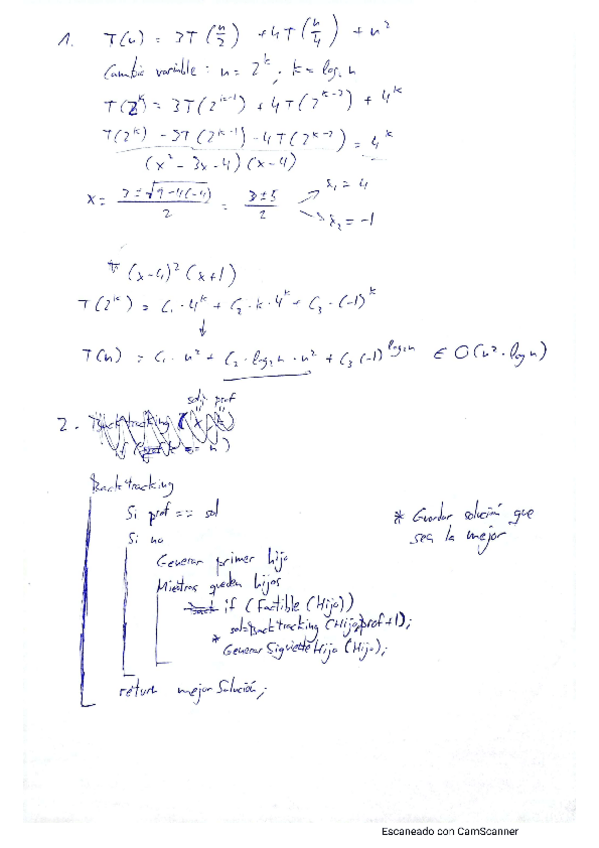 1. T(n) = 3T(n/2) + 4T(n/4) + n²
Cambio variable: n = 2^k ; k = log₂ n
T(2^k) = 3T(2^(k-1)) + 4T(2^(k-2)) + 4^k
T(2^k) - 3T(2^(k-1)) - 4T(2^(k-2)) = 4^k
(x² - 3x - 4)(x-4)
x = (3 ± √(9-4(-4)))/2 = (3±5)/2 → x₁ = 4
→ x₂ = -1
(x-4)² (x+1)
T(2^k) = C₁·4^k + C₂·k·4^k + C₃·(-1)^k
↓
T(n) = C₁·n² + C₂·log₂n·n² + C₃(-1)^(log₂n) ∈ O(n²·log n)
sol, pref
2. -
Backtracking
Si pref == sol
Si no
Generar primer hijo
Mientras queden hijos
if (Factible (Hijo))
sol=Backtracking (Hijo, pref+1);
* Generar Siguiente Hijo (Hijo);
return mejor Solución;
* Guardar solución que
sea la mejor
Escaneado con CamScanner